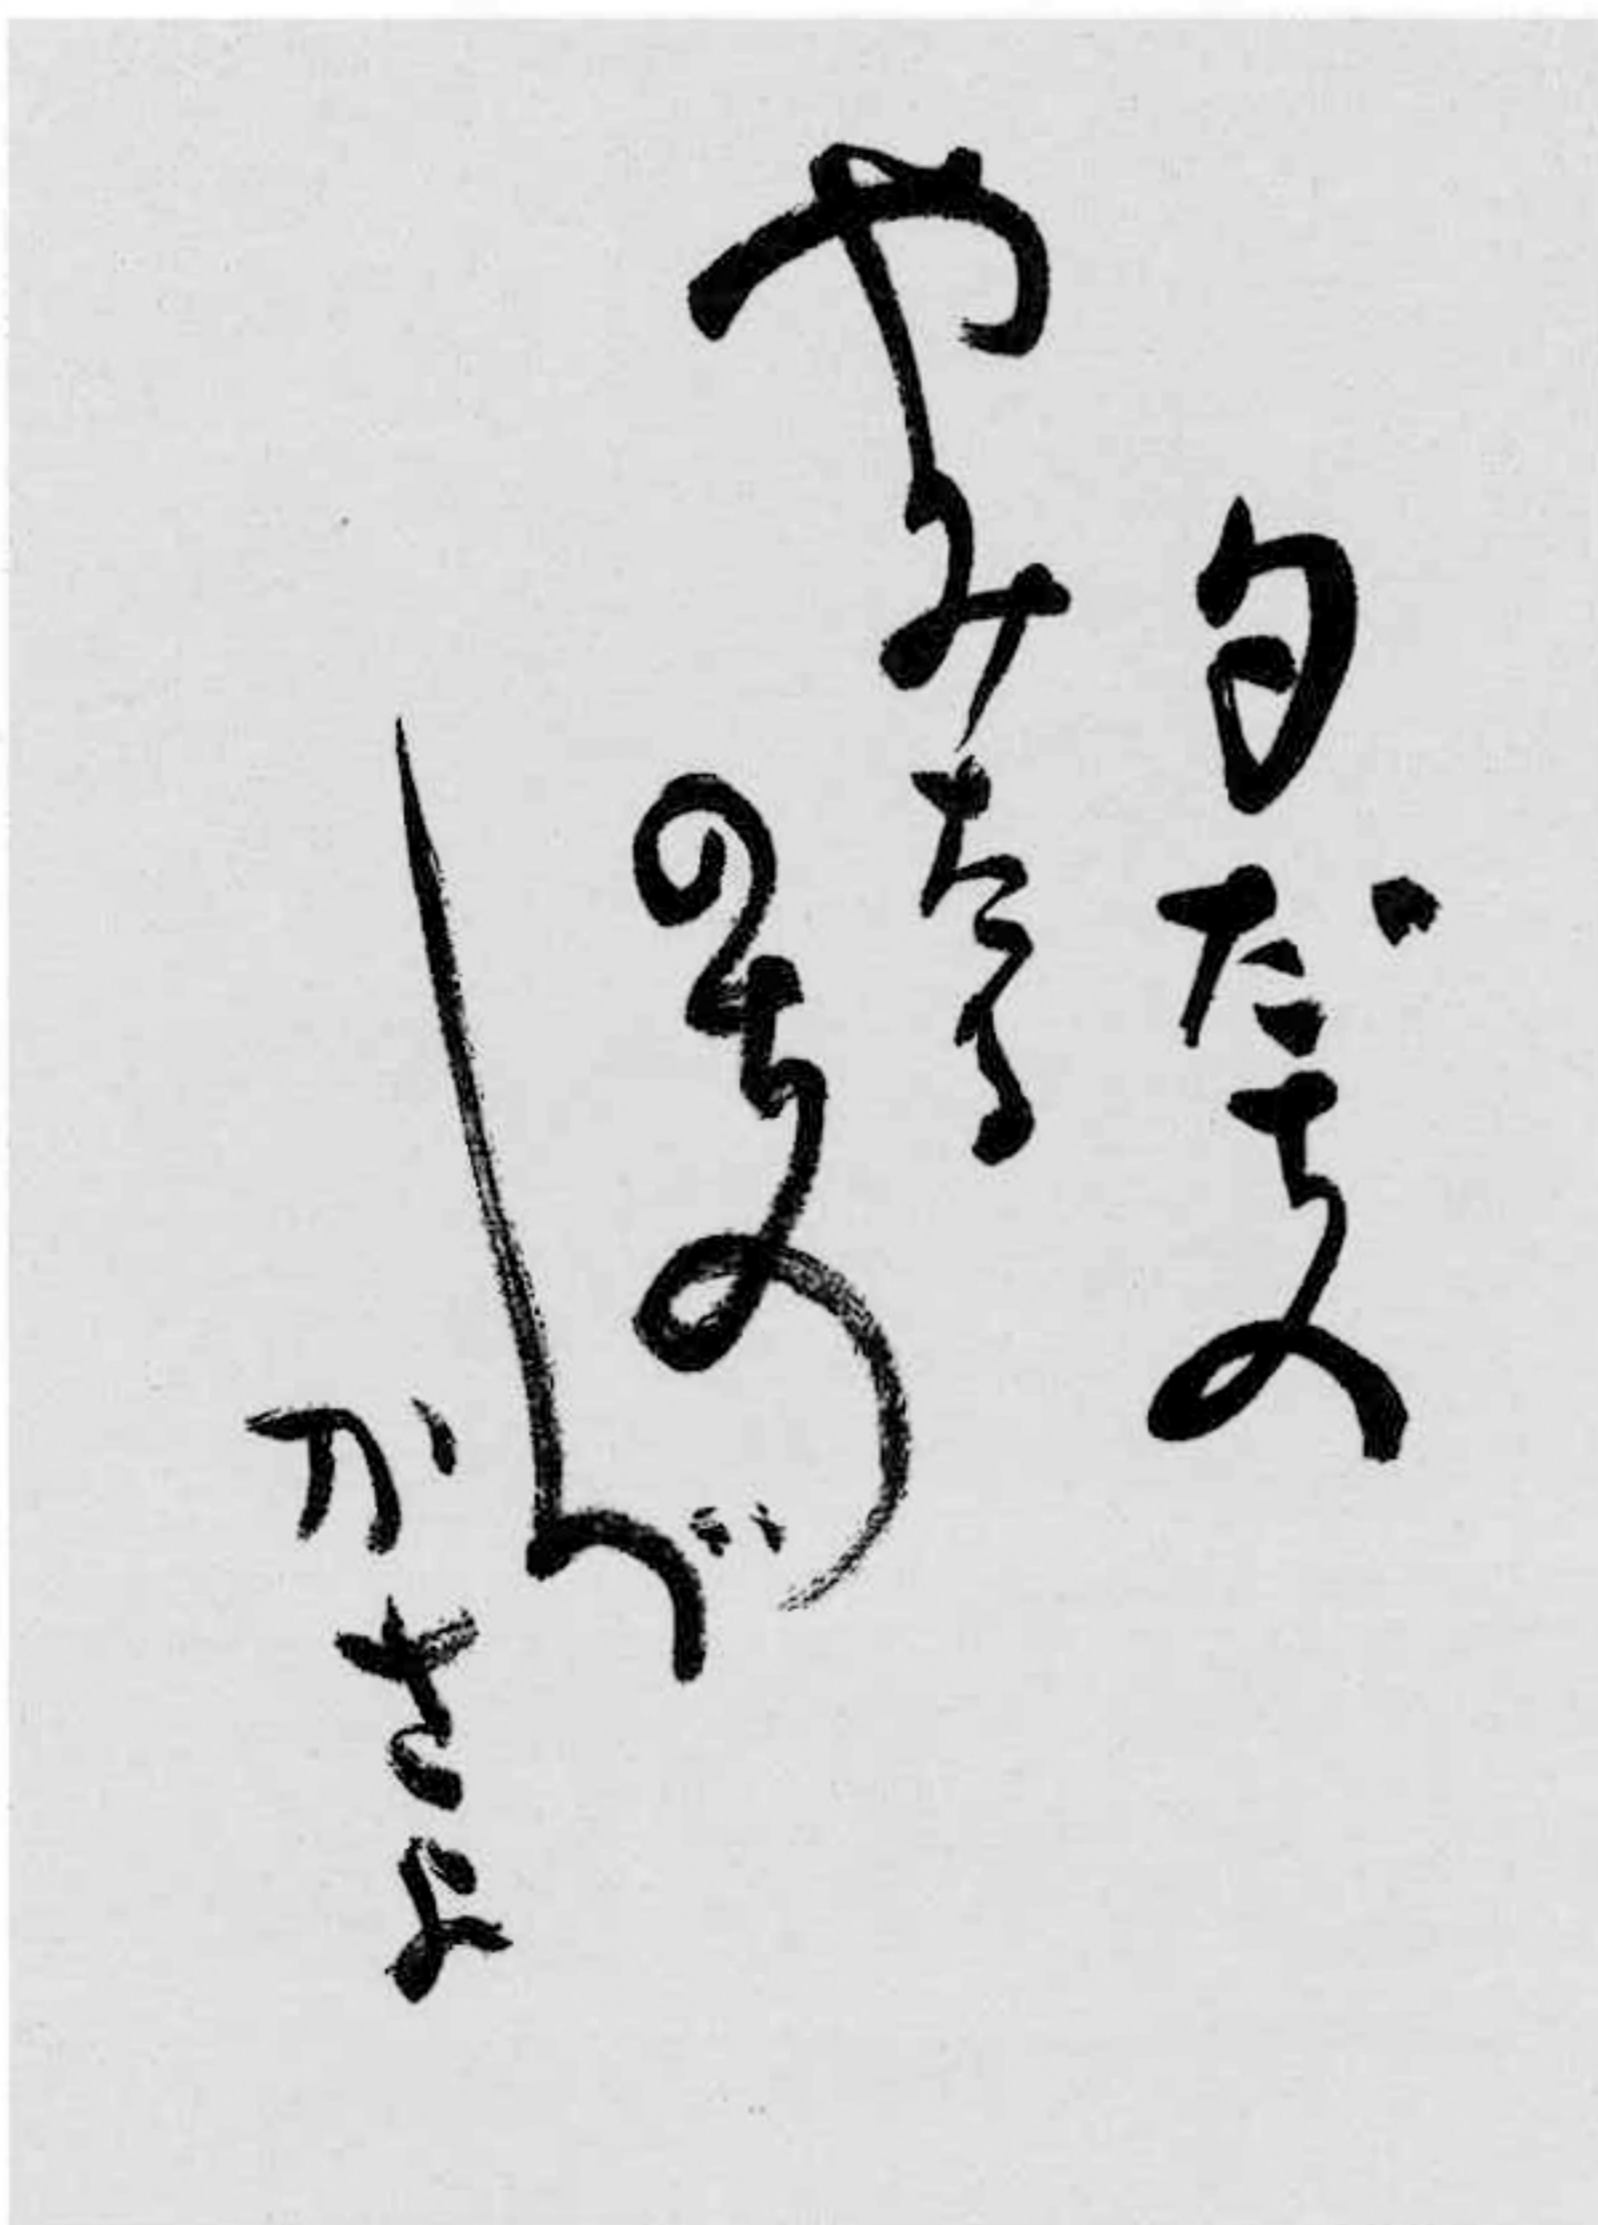 夕だちの
やみたる
のちの
しづ
かさよ